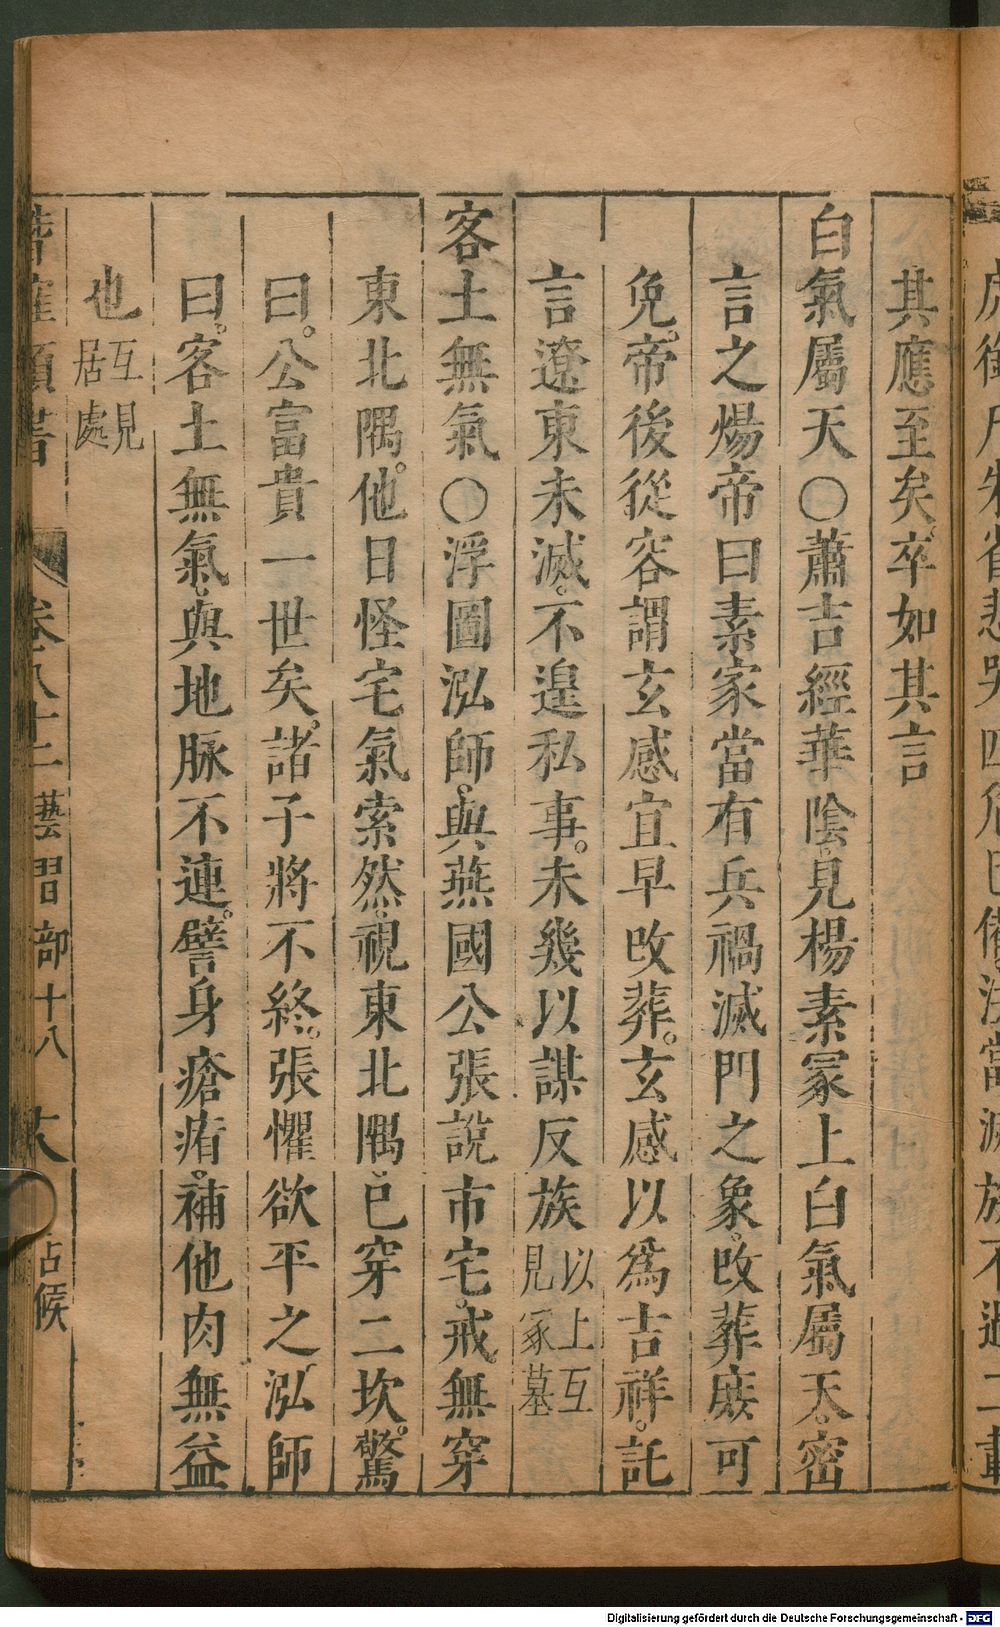 其應至矣。卒如其言
白氣屬天○蕭吉經華陰。見楊素冢上白氣屬天。密
言之煬帝曰素家當有兵禍滅門之象。改葬庻可
免。帝後從容謂玄感宜早改葬。玄感以爲吉祥。託
言遼東未滅。不遑私事。未幾以謀反族以上互
見冢墓
客土無氣○浮圖泓師。與燕國公張說市宅。戒無穿
東北隅。他日怪宅氣索然。視東北隅、已穿二坎。驚
曰。公富貴一世矣。諸子將不終。張懼欲平之、泓師
曰。客土無氣。與地脉不連。譬身瘡痏。補他肉無益
也互見
居處
卷八十二 藝習部十八 占候
Digitalisierung gefördert durch die Deutsche Forschungsgemeinschaft - DFG